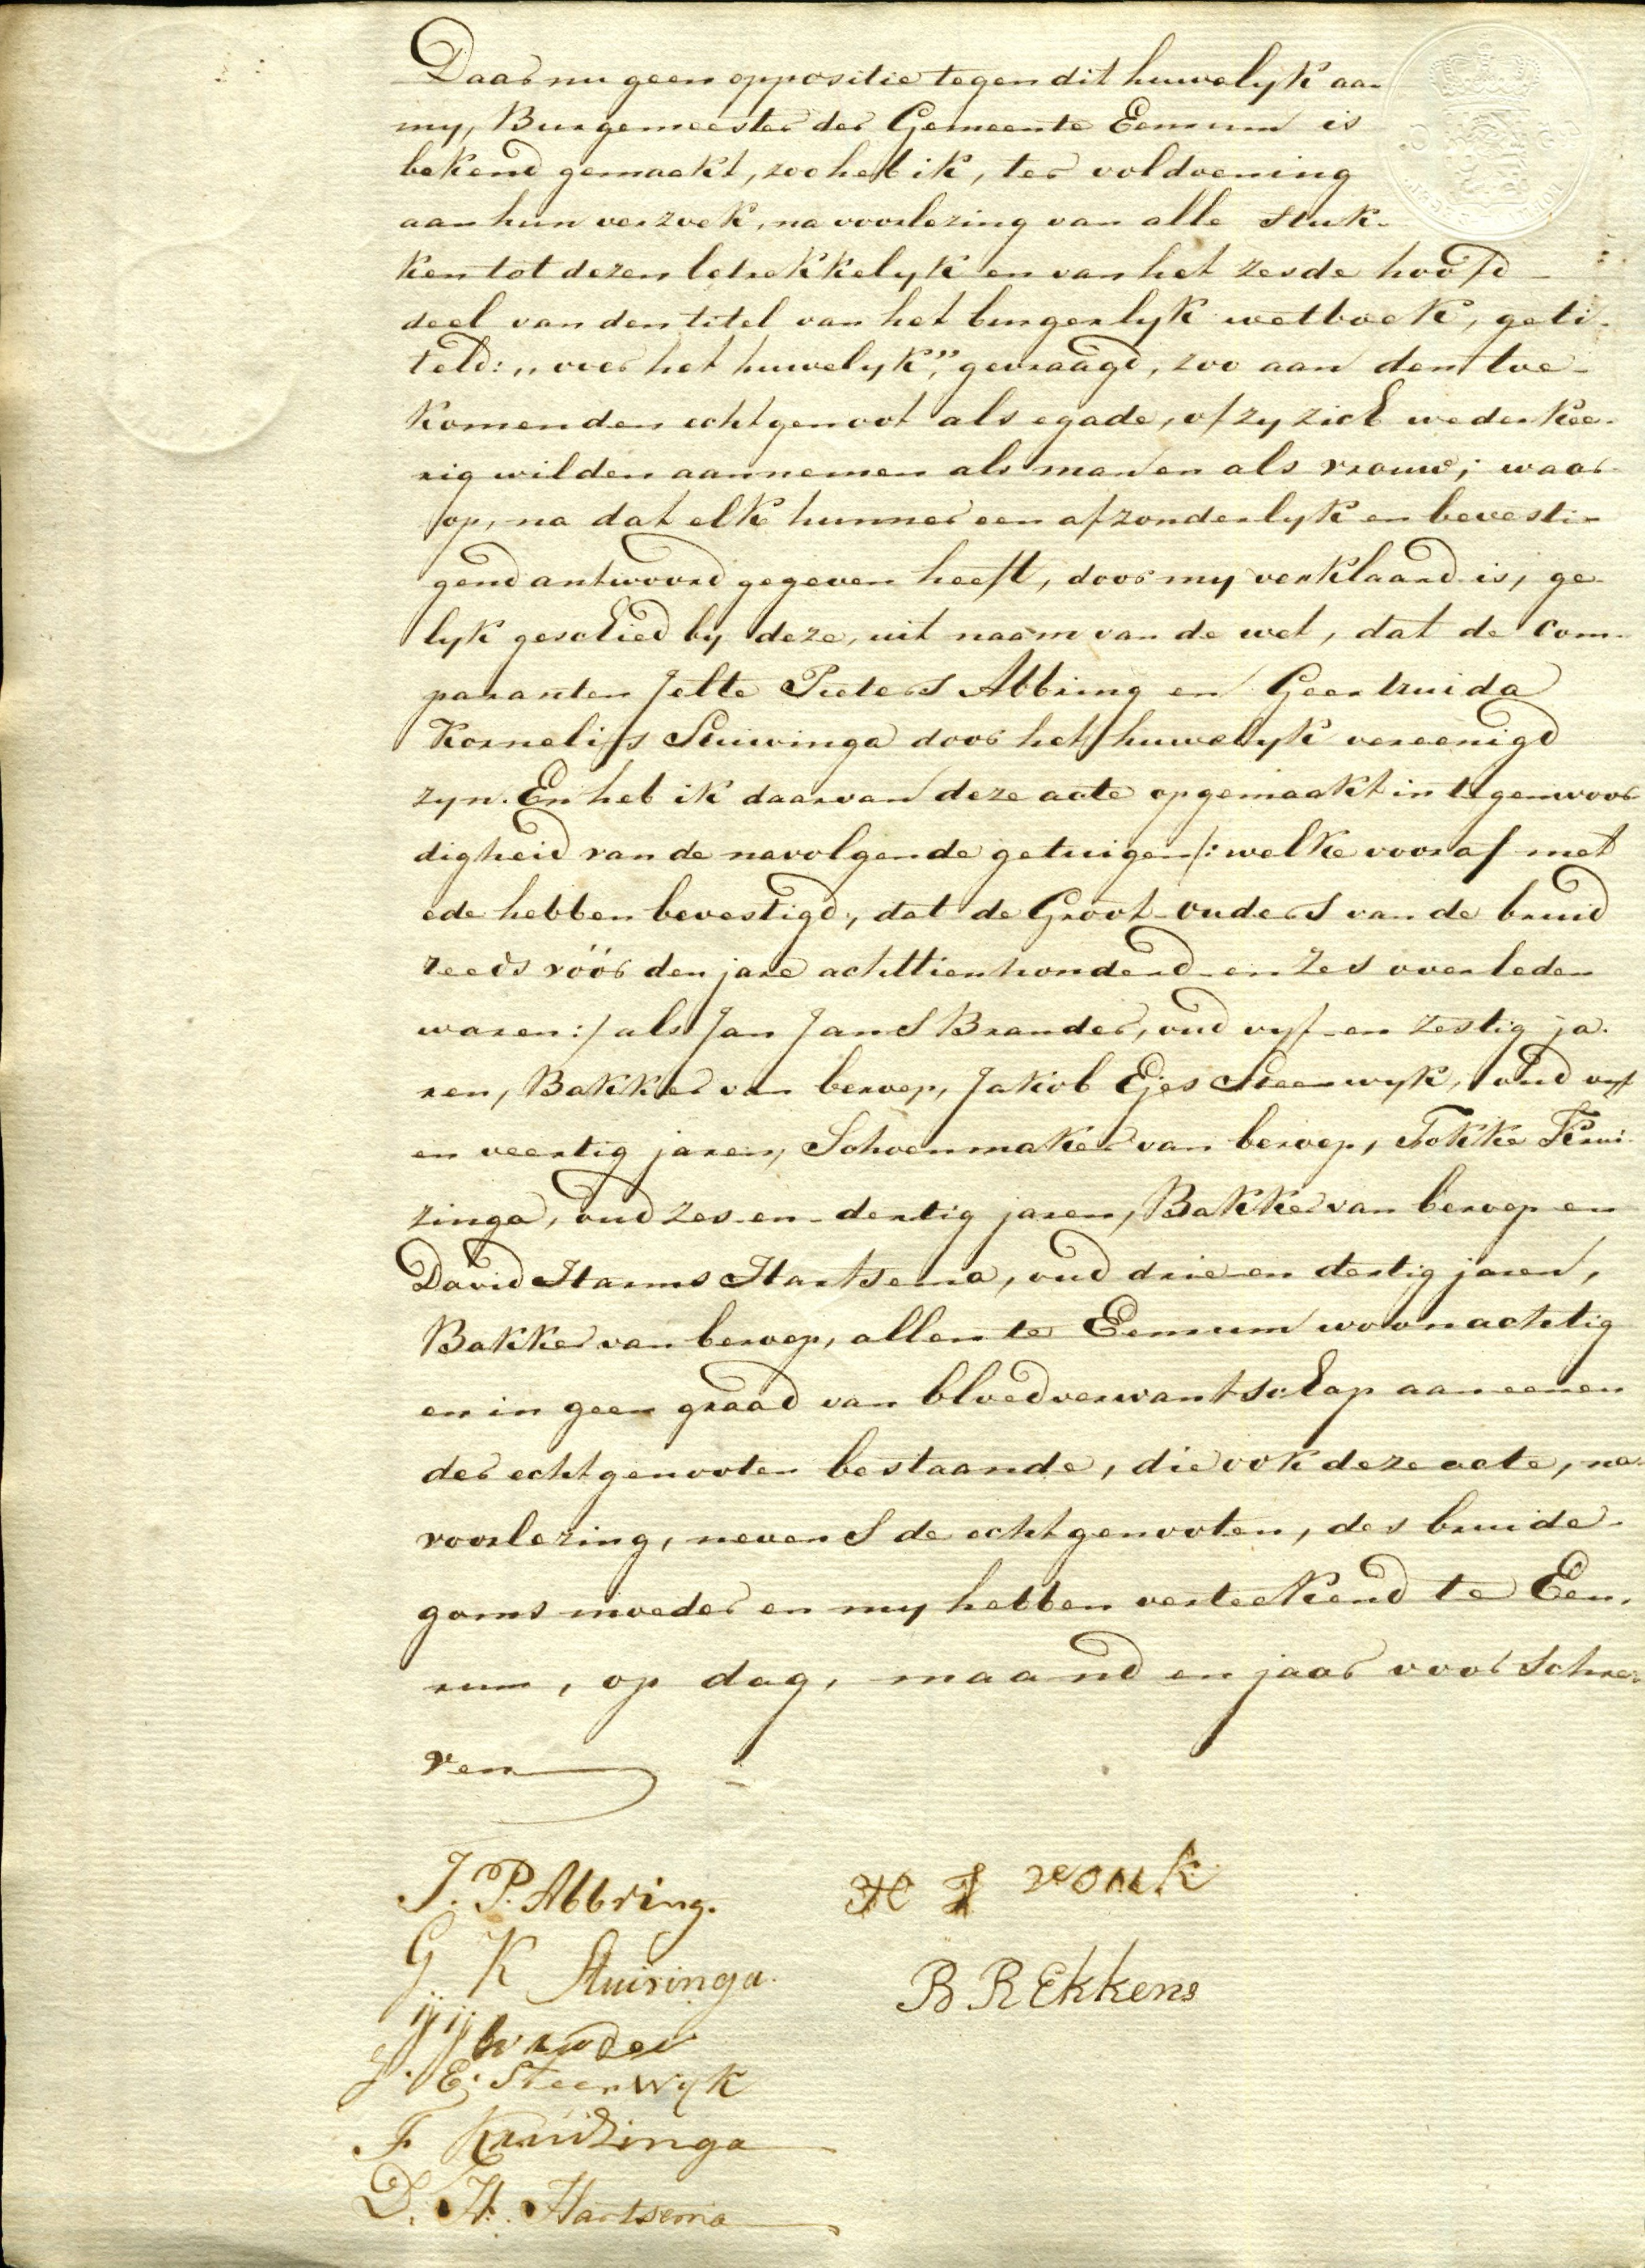 Daar nu geen oppositie tegen dit huwelyk aan
my, Burgemeester der Gemeente Eenrum is
bekend gemaakt, zoo heb ik, ter voldoening
aan hun verzoek, na voorlezing van alle Stuk-
ken tot dezen betrekkelyk en van het zesde hoofd-
deel van den titel van het burgerlyk wetboek, geti-
teld: „over het huwelyk”, gevraagd, zoo aan den toe-
komenden echtgenoot als egade, of zy zich wederkee-
rig wilden aannemen als man en als vrouw; waar-
op, na dat elk hunner een afzonderlyk en bevesti-
gend antwoord gegeven heeft, door my verklaard is, ge-
lyk geschied by deze, uit naam van de wet, dat de com-
paranten Jelte Pieters Abbring en Geertruida
Kornelifs Stuivinga door het huwelyk vereenigd
zyn. En heb ik daarvan deze acte opgemaakt in tegenwoor-
digheid van de navolgende getuigen /: welke vooraf met
ede hebben bevestigd, dat de Groot-ouders van de bruid
reeds vóór den jare achttienhonderd-en zes overleden
waren :/ als Jan Jans Brander, oud vyf-en zestig ja-
ren, Bakker van beroep, Jakob Ejes Steenwyk, oud vyf
en veertig jaren, Schoenmaker van beroep, Fokke Krui-
zinga, oud zes-en-dertig jaren, Bakker van beroep en
David Harms Hartsema, oud drie-en dertig jaren,
Bakker van beroep, allen te Eenrum woonachtig
en in geen graad van bloedverwantschap aan eenen
der echtgenooten bestaande, die ook deze acte, na
voorlezing, nevens de echtgenooten, des bruide-
goms moeder en my hebben verteekend te Een-
rum, op dag, maand en jaar voorschre-
ven
J. P. Abbring. H J vonk
G K Stuivinga.
B R Ekkens
JJ brander
J. E. Steenwyk
F Kruizinga
D. H. Hartsema